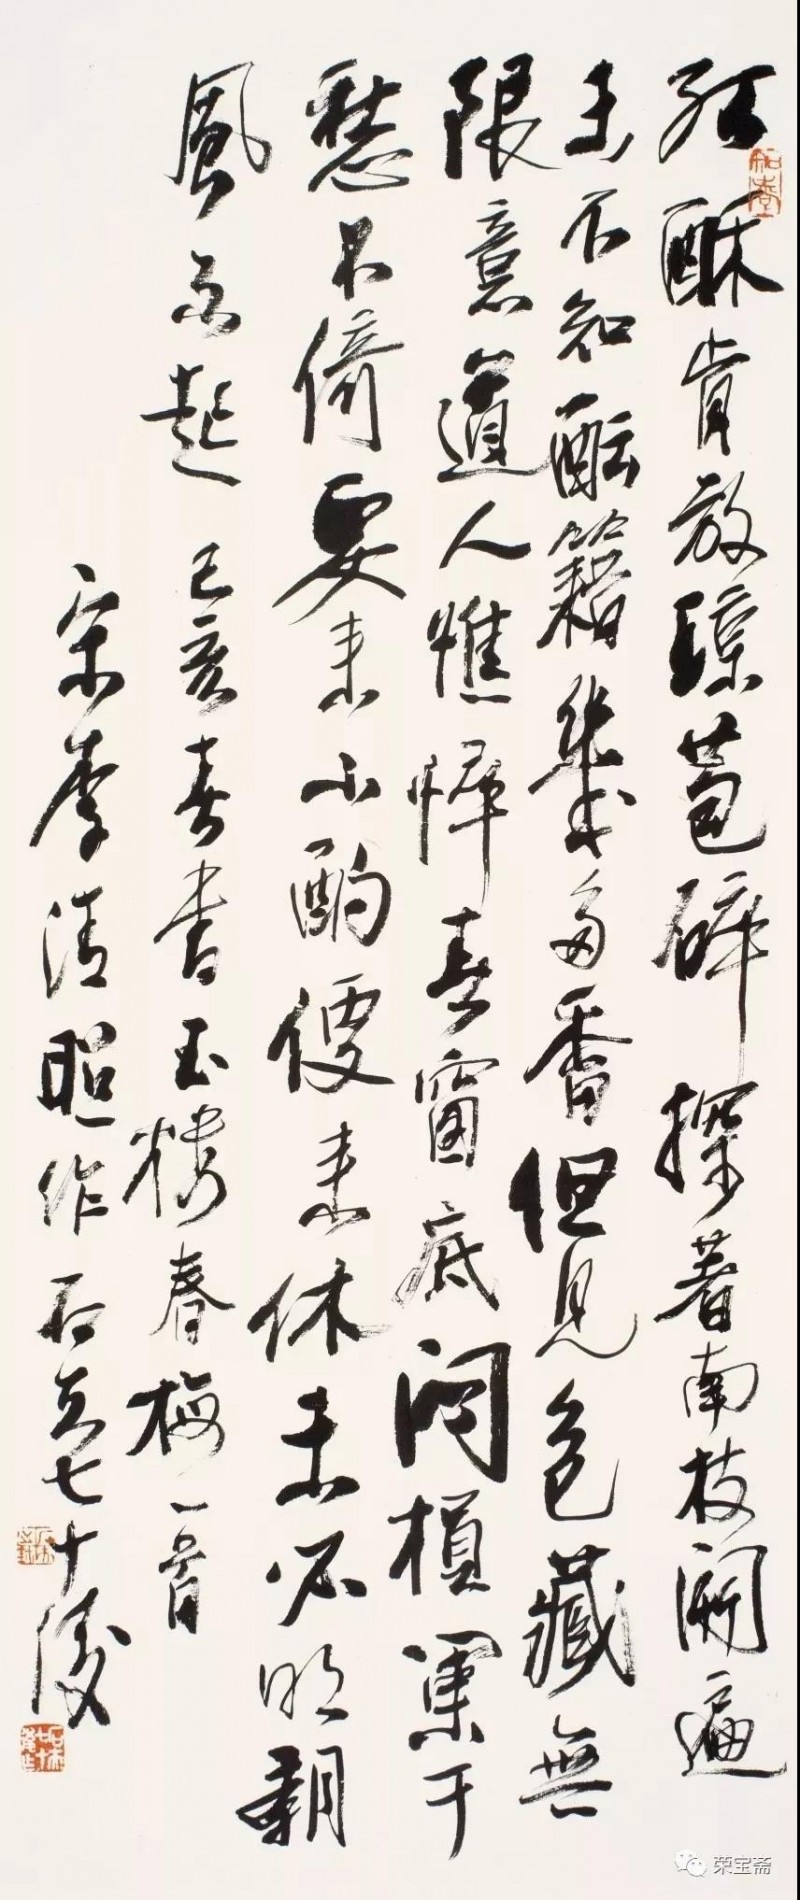 紅酥肯放琼苞碎探著南枝開遍
未不知醖籍幾多香但見色藏無
限意道人憔悴春窗底悶損闌干
愁不倚要来小酌便来休未必明朝
風不起 己亥春書玉樓春梅一首
宋李清照作 七十後
荣宝斋